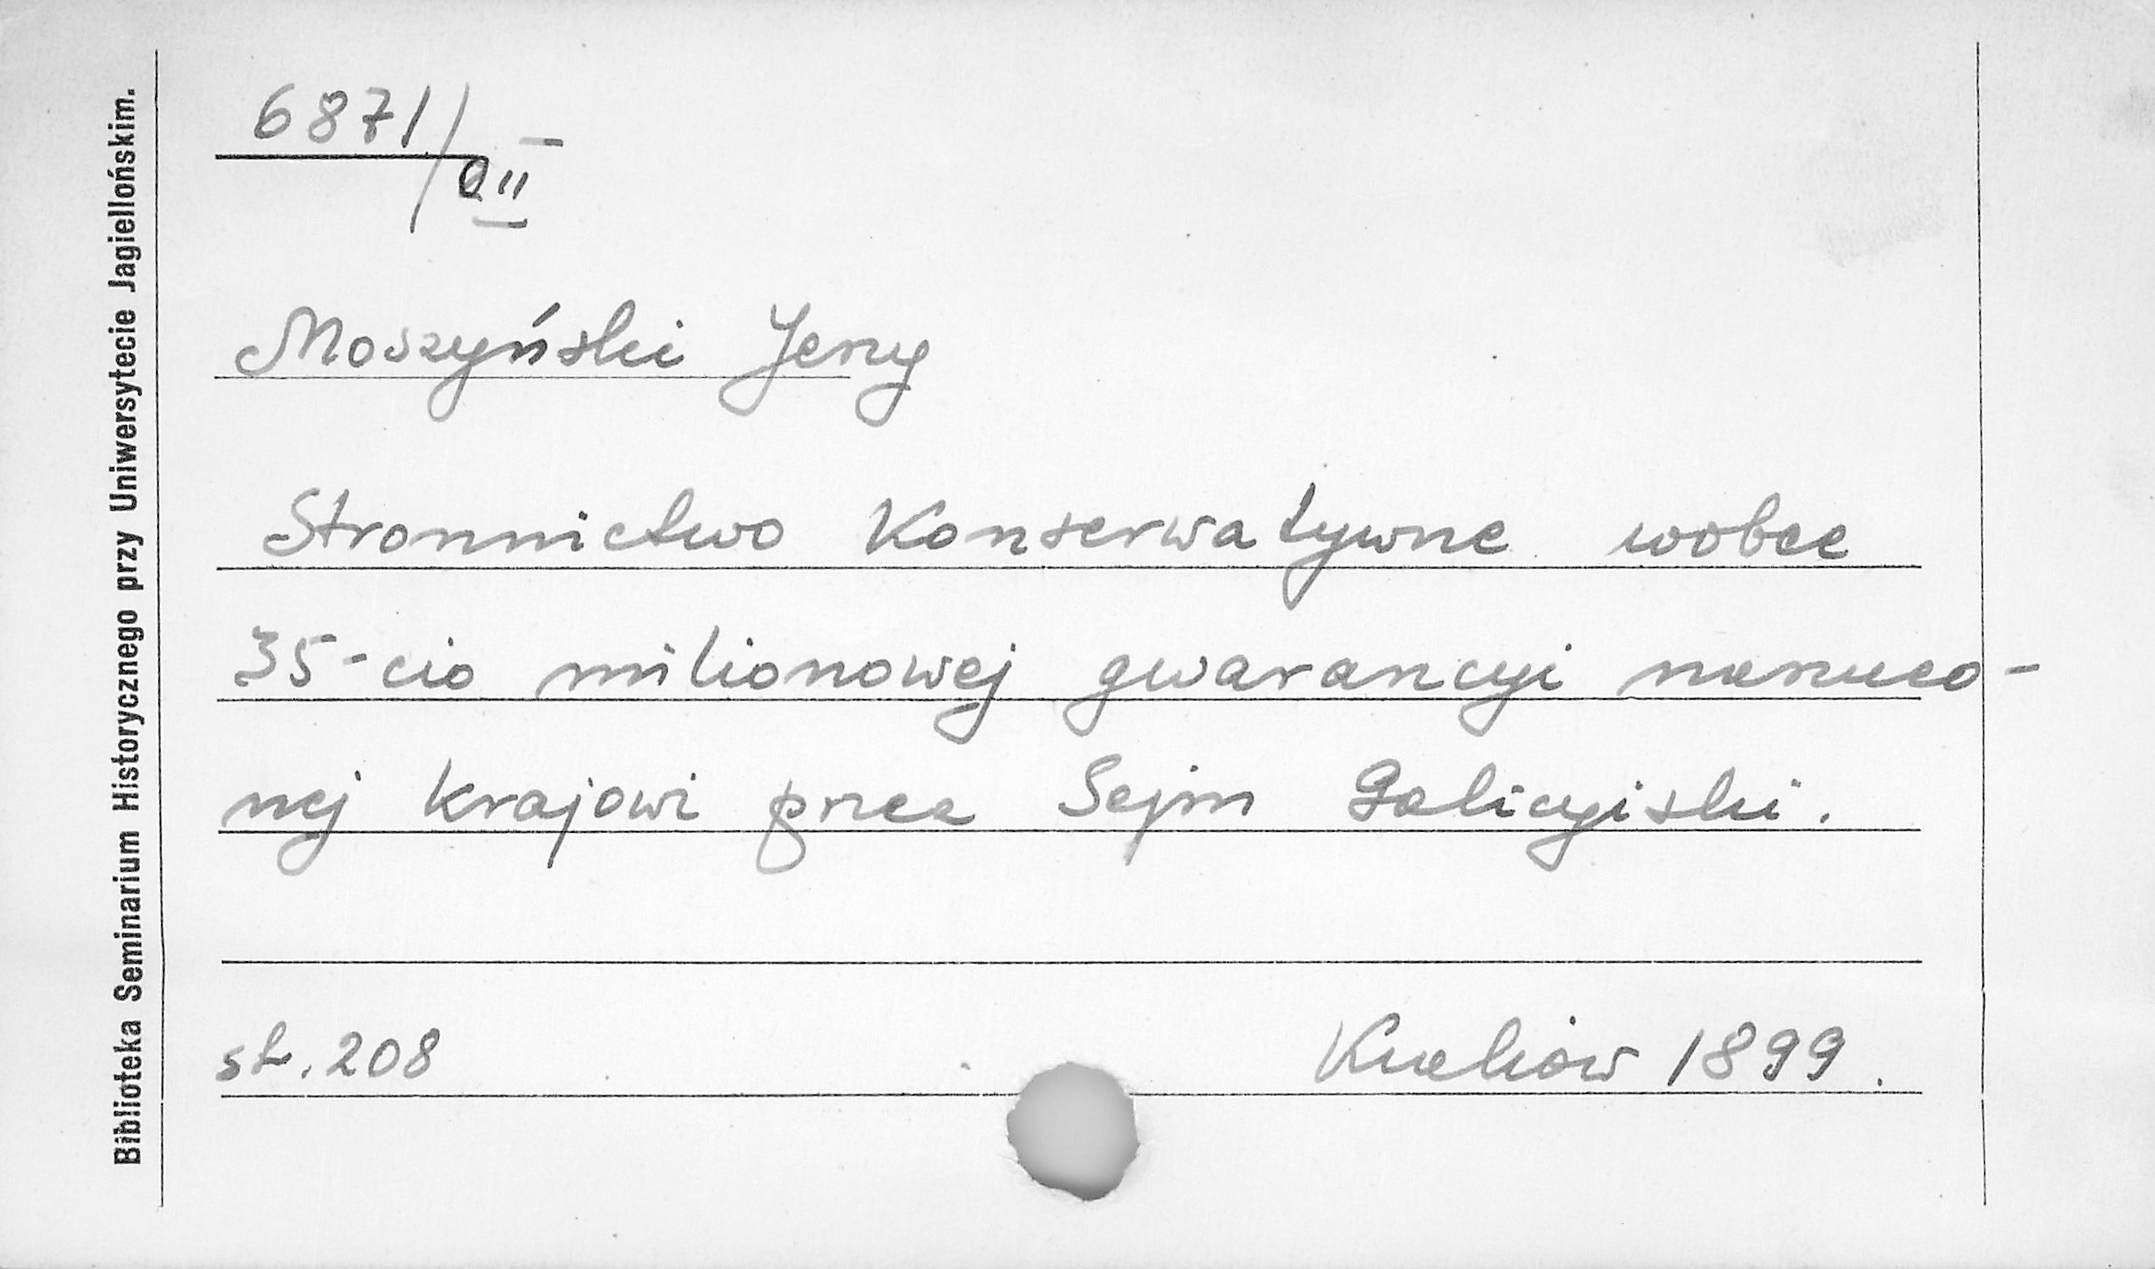 Biblioteka Seminarium Historycznego przy Uniwersytecie Jagiellońskim.
6871/
II
Moszyński Jerzy
Stronnictwo Konserwatywne wobec
35-cio milionowej gwarancyi narzuco-
nej krajowi przez Sejm Galicyjski.
st. 208 Kraków 1899.